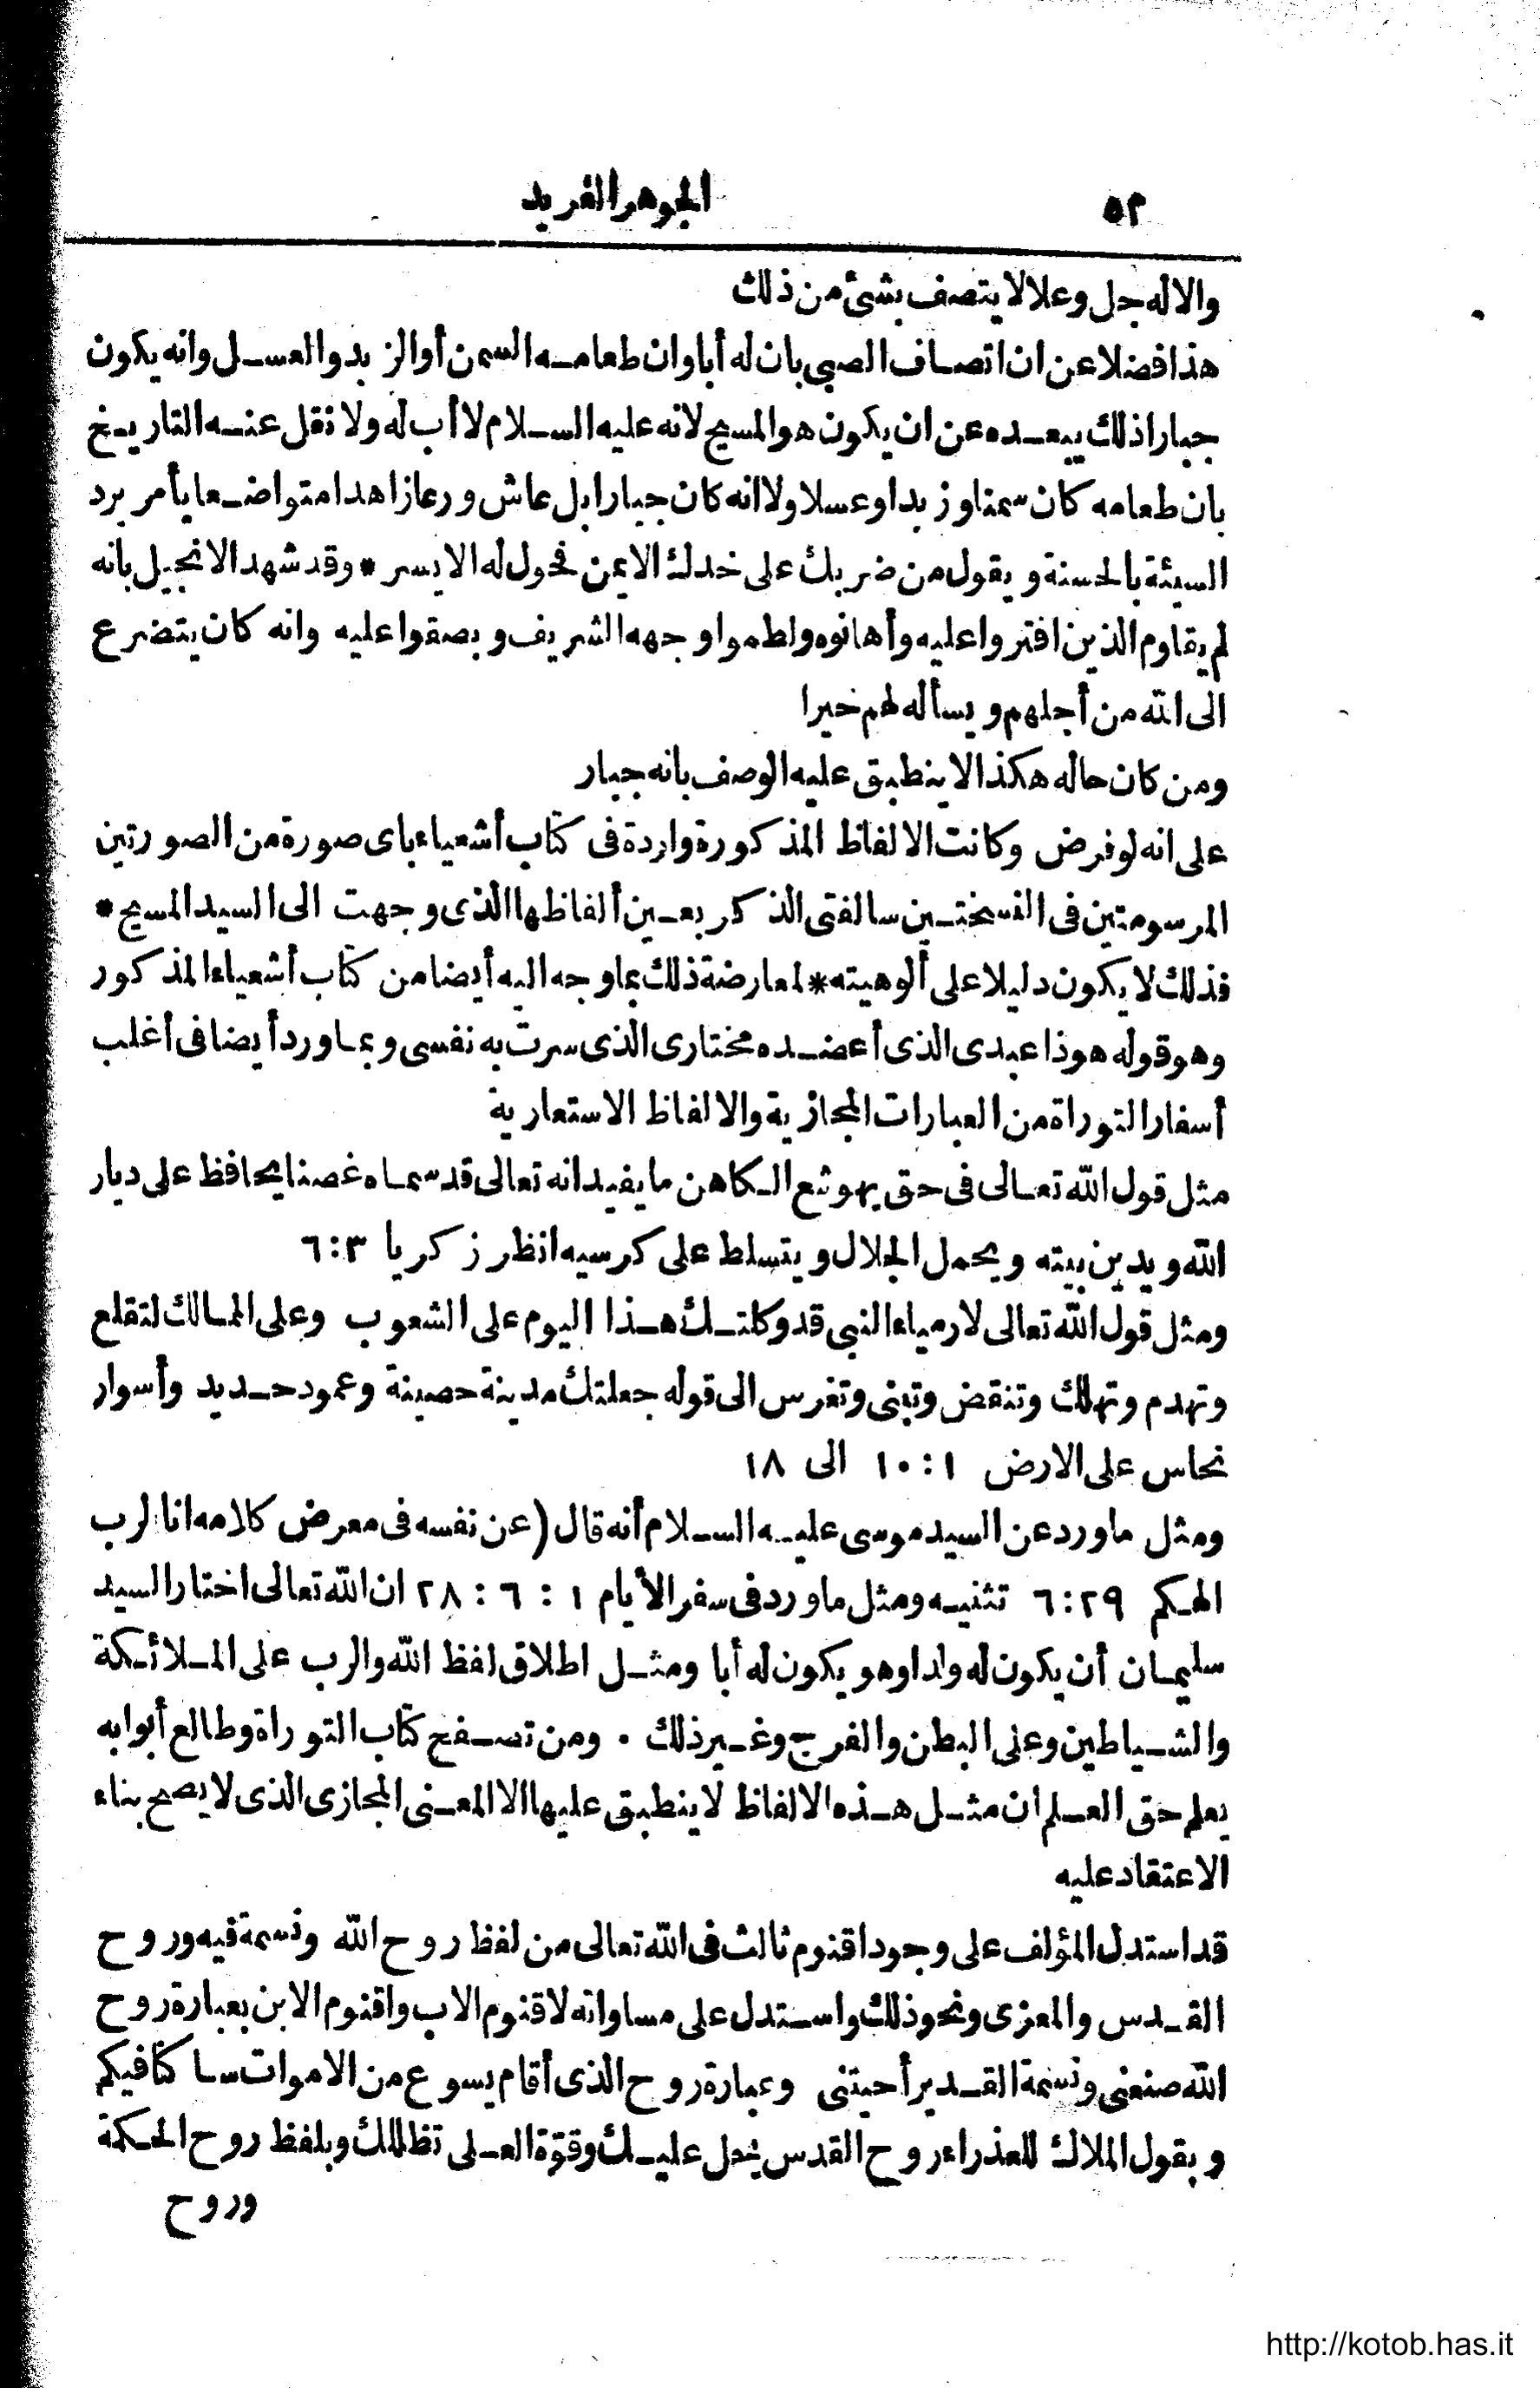 ٥٢
الجوهر الفريد
والاله جل وعلا لا يتصف بشئ من ذلك
هذا فضلا عن ان اتصاف الصبي بان له أبا وان طعامه السمن أو الزبد والعسل وانه يكون
جبارا ذلك يبعده عن ان يكون هو المسيح لانه عليه السلام لا أب له ولا نقل عنه التاريخ
بان طعامه كان سمنا وزبدا وعسلا ولا انه كان جبارا بل عاش ورعا زاهدا متواضعا يأمر برد
السيئة بالحسنة ويقول من ضربك على خدك الايمن فحول له الايسر * وقد شهد الانجيل بانه
لم يقاوم الذين افتروا عليه وأهانوه ولطموا وجهه الشريف وبصقوا عليه وانه كان يتضرع
الى الله من أجلهم ويسأله لهم خيرا
ومن كان حاله هكذا لا ينطبق عليه الوصف بانه جبار
على انه لو فرض وكانت الالفاظ المذكورة واردة فى كتاب أشعياء باى صورة من الصورتين
المرسومتين فى النسختين سالفتى الذكر بعين ألفاظها الذى وجهت الى السيد المسيح *
فذلك لا يكون دليلا على ألوهيته * لمعارضة ذلك بما وجه اليه أيضا من كتاب أشعياء المذكور
وهو قوله هوذا عبدى الذى أعضده مختارى الذى سرت به نفسى وبما ورد أيضا فى أغلب
أسفار التوراة من العبارات المجازية والالفاظ الاستعارية
مثل قول الله تعالى فى حق يهوشع الكاهن ما يفيد انه تعالى قد سماه غصنا يحافظ على ديار
الله ويدين بيته ويحمل الجلال ويتسلط على كرسيه انظر زكريا ٣:٦
ومثل قول الله تعالى لارمياء النبى قد وكلتك هذا اليوم على الشعوب وعلى الممالك لتقلع
وتهدم وتهلك وتنقض وتبنى وتغرس الى قوله جعلتك مدينة حصينة وعمود حديد وأسوار
نحاس على الارض ١:١٠ الى ١٨
ومثل ما ورد عن السيد موسى عليه السلام أنه قال (عن نفسه فى معرض كلامه انا الرب
الهكم ٢٩:٦ تثنيه ومثل ما ورد فى سفر الأيام ١ : ٦ : ٢٨ ان الله تعالى اختار السيد
سليمان أن يكون له ولدا وهو يكون له أبا ومثل اطلاق لفظ الله والرب على الملائكة
والشياطين وعلى البطن والفرج وغير ذلك . ومن تصفح كتاب التوراة وطالع أبوابه
يعلم حق العلم ان مثل هذه الالفاظ لا ينطبق عليها الا المعنى المجازى الذى لا يصح بناء
الاعتقاد عليه
قد استدل المؤلف على وجود اقنوم ثالث فى الله تعالى من لفظ روح الله ونسمة فيه وروح
القدس والمعزى ونحو ذلك واستدل على مساواته لاقنوم الاب واقنوم الابن بعبارة روح
الله صنعنى ونسمة القدير أحيتنى وعبارة روح الذى أقام يسوع من الاموات ساكنا فيكم
وبقول الملاك للعذراء روح القدس يحل عليك وقوة العلى تظللك وبلفظ روح الحكمة
وروح
http://kotob.has.it